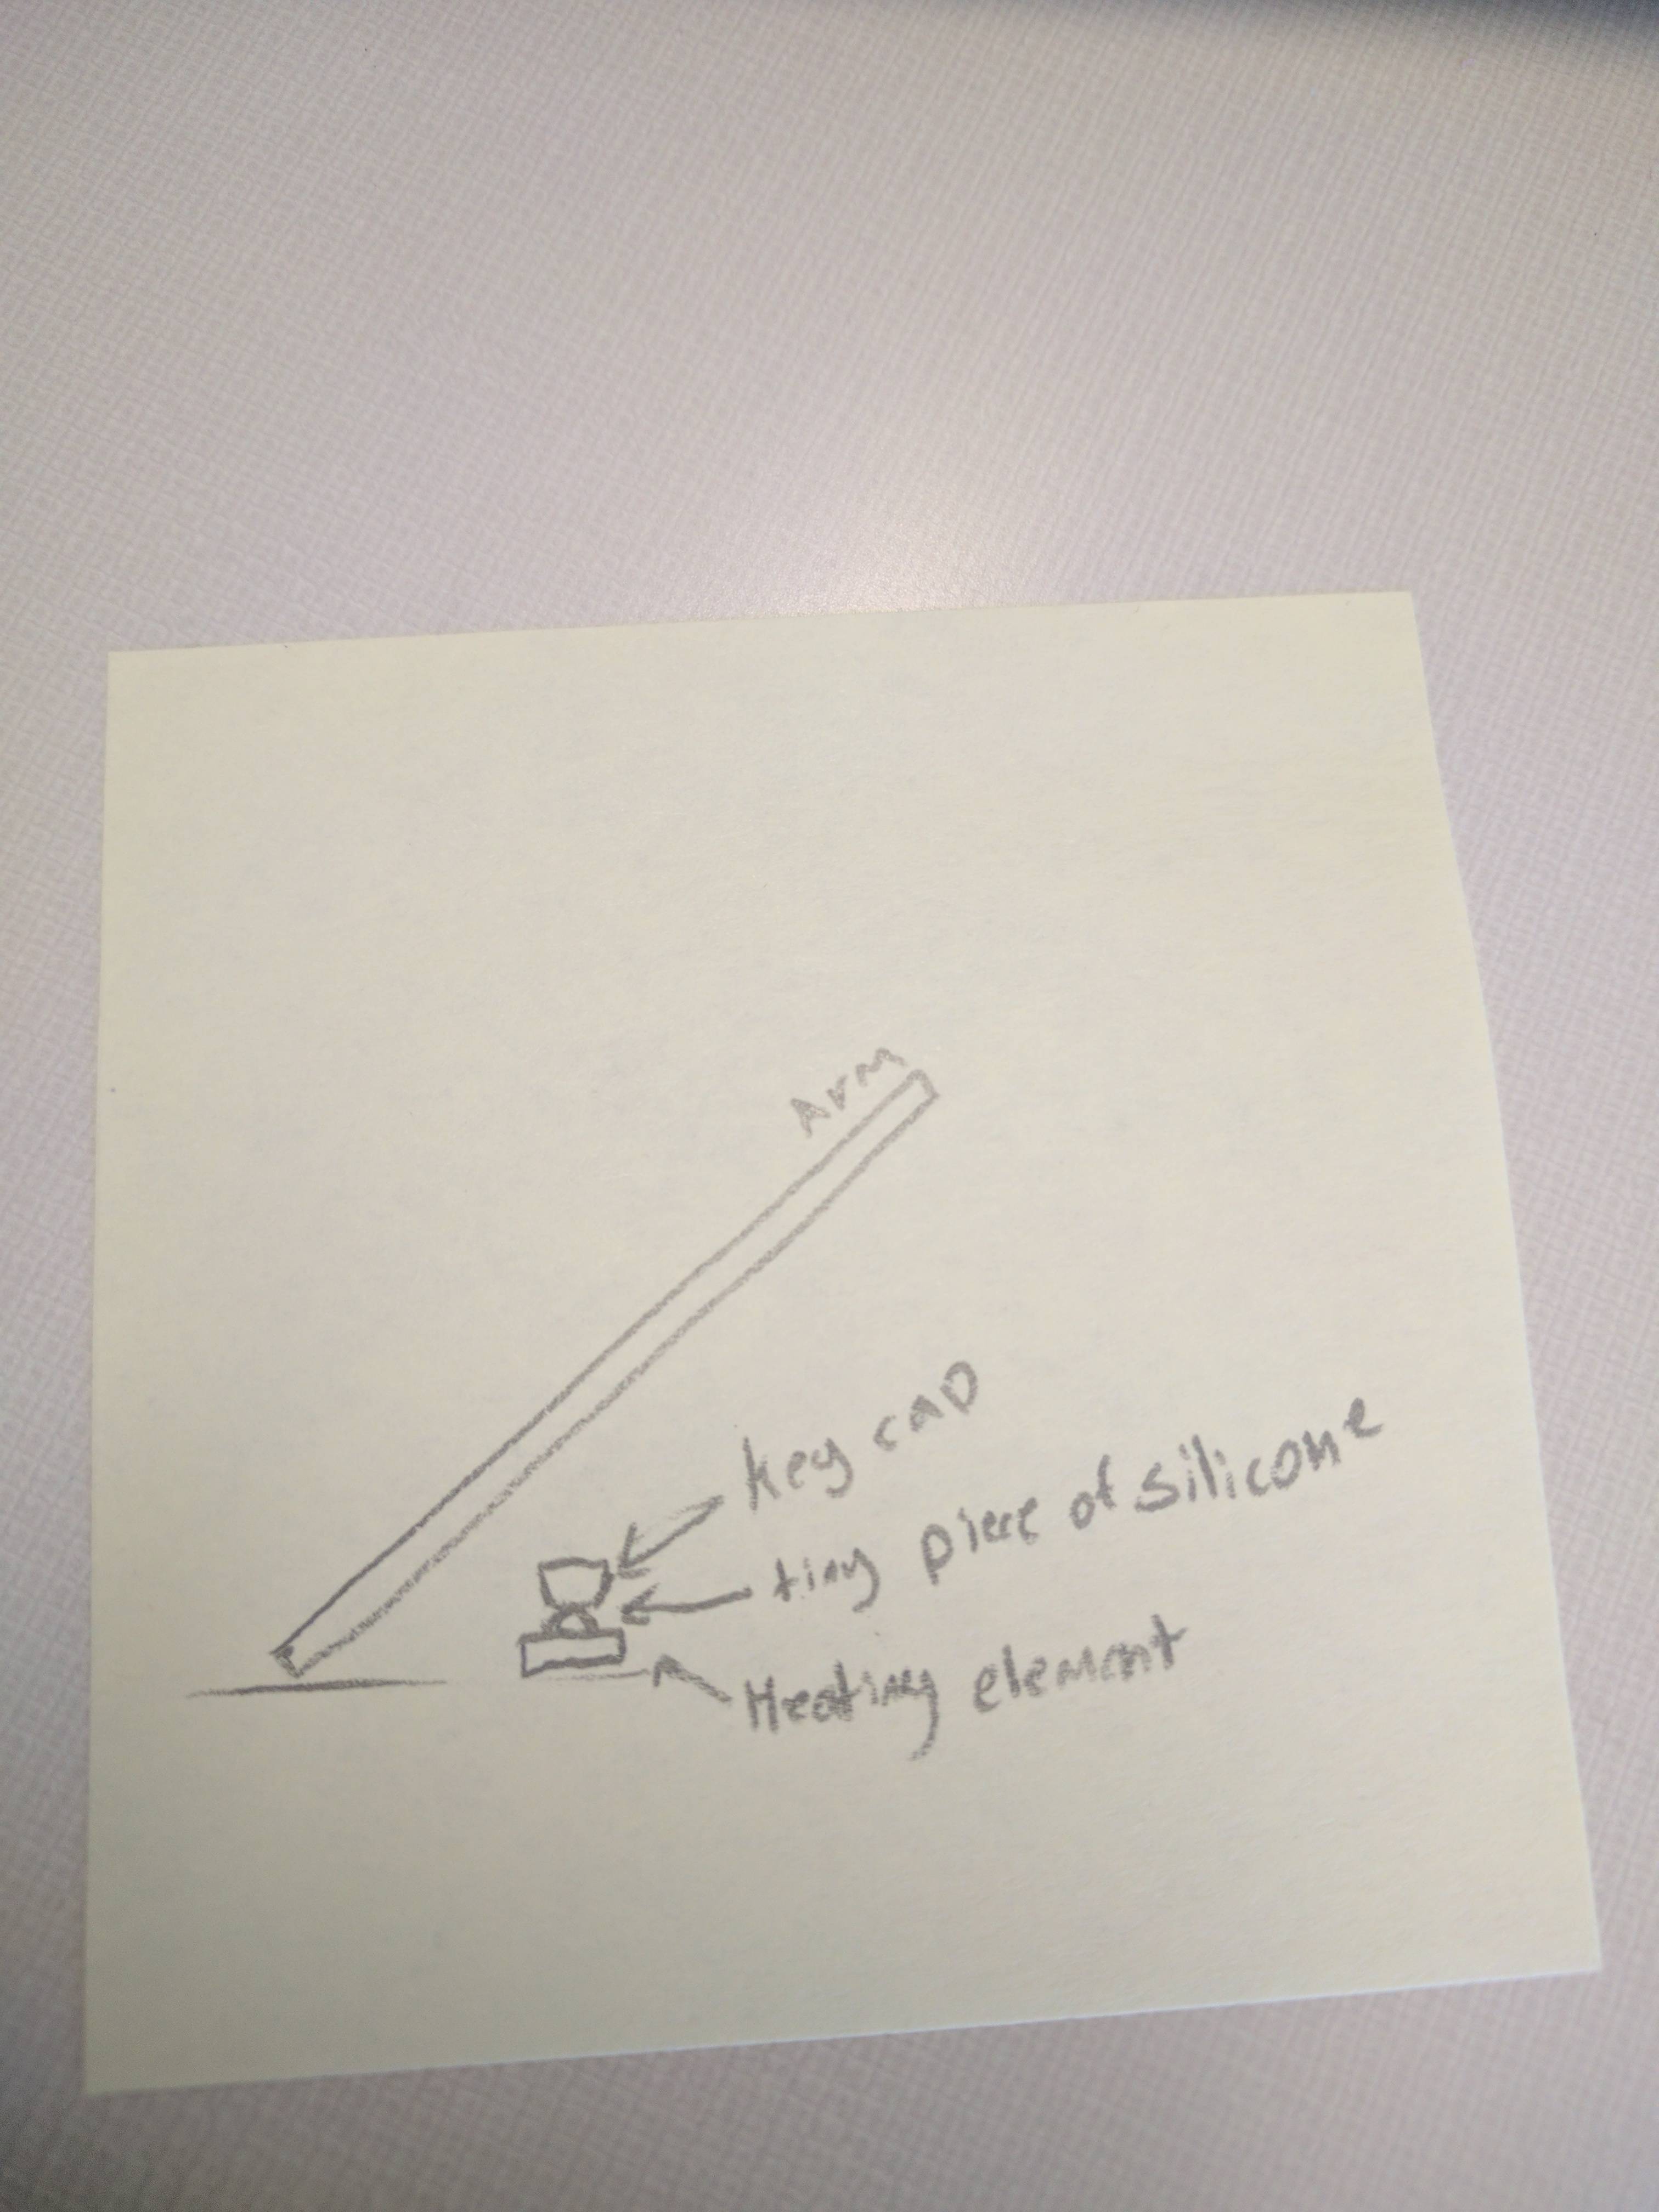 Arm
key cap
tiny piece of silicone
Heating element